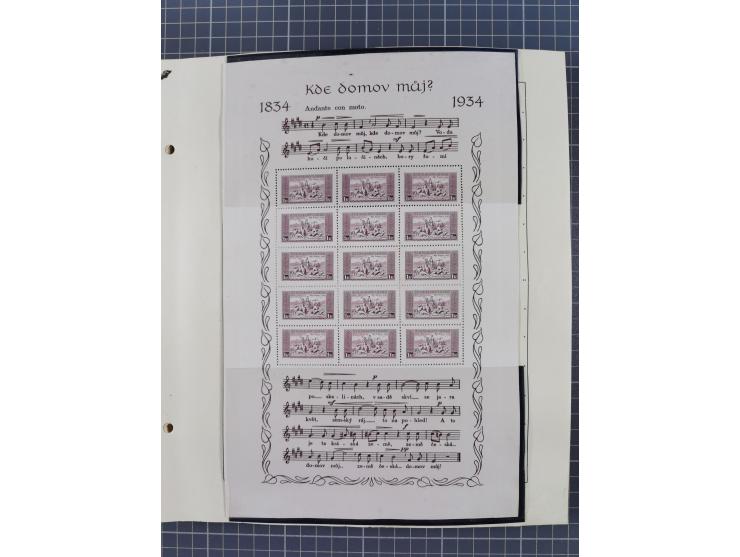 Kde domov můj?
1834 Andante con moto. 1934
Kde do-mov můj, kde do-mov můj? Vo-da
hu-čí po lu-či-nách, bo-ry šu-mí
po skа-li-nách, v sa-dě skví se ja-ra
květ, zem-ský ráj to na po-hled! A to
je ta krá-sná ze-mě, ze-mě če-ská
do-mov můj, ze-mě če-ská do-mov můj!